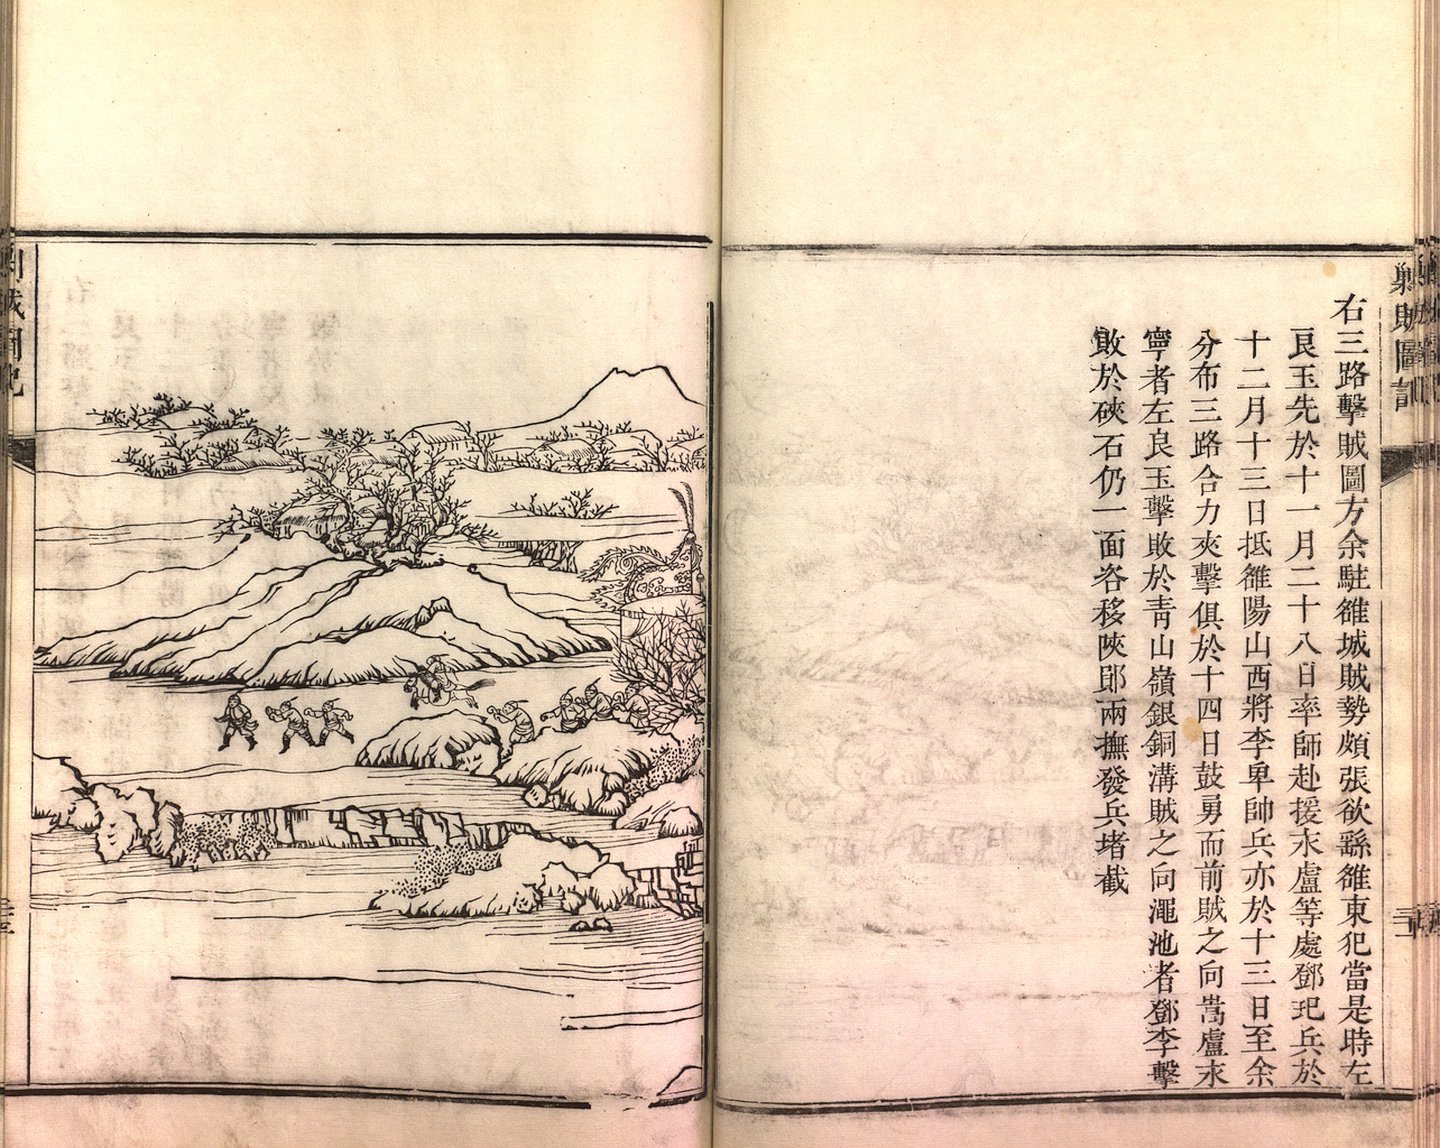 勦賊圖記
右三路擊賊圖方余駐雒城賊勢頗張欲繇雒東犯當是時左
良玉先於十一月二十八日率師赴援永盧等處鄧玘兵於
十二月十三日抵雒陽山西將李卑帥兵亦於十三日至余
分布三路合力夾擊俱於十四日鼓勇而前賊之向嵩盧永
寧者左良玉擊敗於青山嶺銀銅溝賊之向澠池者鄧李擊
敗於硤石仍一面咨移陝鄖兩撫發兵堵截